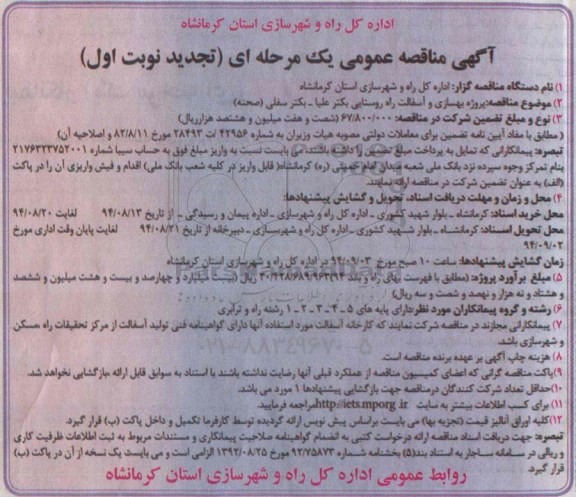 اداره کل راه و شهرسازی استان کرمانشاه
آگهی مناقصه عمومی یک مرحله ای (تجدید نوبت اول)
۱) نام دستگاه مناقصه گزار: اداره کل راه و شهرسازی استان کرمانشاه
۲) موضوع مناقصه: پروژه بهسازی و آسفالت راه روستایی بکتر علیا ـ بکتر سفلی (صحنه)
۳) نوع و مبلغ تضمین شرکت در مناقصه: ۶۷/۸۰۰/۰۰۰ (شصت و هفت میلیون و هشتصد هزارریال)
( مطابق با مفاد آیین نامه تضمین برای معاملات دولتی مصوبه هیات وزیران به شماره ۴۲۹۵۶ /ت ۲۸۴۹۳ مورخ ۸۲/۸/۱۱ و اصلاحیه آن)
تبصره: پیمانکارانی که تمایل به پرداخت مبلغ تضمین را داشته باشند، می بایست نسبت به واریز مبلغ فوق به حساب سیبا شماره ۲۱۷۶۳۲۳۷۵۲۰۰۱
بنام تمرکز وجوه سپرده نزد بانک ملی شعبه میدان امام خمینی (ره) کرمانشاه( قابل واریز در کلیه شعب بانک ملی) اقدام و فیش واریزی آن را در پاکت
(الف) به عنوان تضمین شرکت در مناقصه ارائه نمایند.
۴) محل و زمان و مهلت دریافت اسناد، تحویل و گشایش پیشنهادها:
محل خرید اسناد: کرمانشاه ـ بلوار شهید کشوری ـ اداره کل راه و شهرسازی ـ اداره پیمان و رسیدگی ـ از تاریخ ۹۴/۰۸/۱۳ لغایت ۹۴/۰۸/۲۰
محل تحویل اسناد: کرمانشاه ـ بلوار شهید کشوری ـ اداره کل راه و شهرسازی ـ دبیرخانه از تاریخ ۹۴/۰۸/۲۱ لغایت پایان وقت اداری مورخ
۹۴/۰۹/۰۲
زمان گشایش پیشنهادها: ساعت ۱۰ صبح مورخ ۹۴/۰۹/۰۳ در اداره کل راه و شهرسازی استان کرمانشاه
۵) مبلغ برآورد پروژه: (مطابق با فهرست بهای راه و باند ریال (بیست میلیارد و چهارصد و بیست و هشت میلیون و ششصد
و هشتاد و نه هزار و نهصد و شصت و سه ریال)
۶) رشته و گروه پیمانکاران مورد نظر: دارای پایه های ۵ ـ ۴ ـ ۳ ـ ۲ ـ ۱ رشته راه و ترابری
۷) پیمانکارانی مجازند در مناقصه شرکت نمایند که کارخانه آسفالت مورد استفاده آنها دارای گواهینامه فنی تولید آسفالت از مرکز تحقیقات راه ،مسکن
و شهرسازی باشد.
۸) هزینه چاپ آگهی بر عهده برنده مناقصه است.
۹) پاکت مناقصه گرانی که اعضای کمیسیون مناقصه از عملکرد قبلی آنها رضایت نداشته باشند با استناد به سوابق قابل ارائه ،بازگشایی نخواهد شد.
۱۰) حداقل تعداد شرکت کنندگان درمناقصه جهت بازگشایی پیشنهادها ۱ مورد می باشد.
۱۱) برای کسب اطلاعات بیشتر به سایت http://iets.mporg.ir مراجعه فرمایید.
۱۲) کلیه اوراق آنالیز قیمت (تجزیه بها) می بایست براساس پیش نویس ارائه گردیده توسط کارفرما تکمیل و داخل پاکت (ب) قرار گیرد.
تبصره: جهت دریافت اسناد مناقصه ارائه درخواست کتبی به انضمام گواهینامه صلاحیت پیمانکاری و مستندات مربوط به ثبت اطلاعات ظرفیت کاری
و ریالی در سامانه ساجار به استناد بند(۵) بخشنامه شماره ۹۲/۷۵۸۷۳ مورخ ۱۳۹۲/۰۸/۲۵ الزامی است و می بایست یک نسخه از آن در پاکت (ب)
قرار گیرد.
روابط عمومی اداره کل راه و شهرسازی استان کرمانشاه